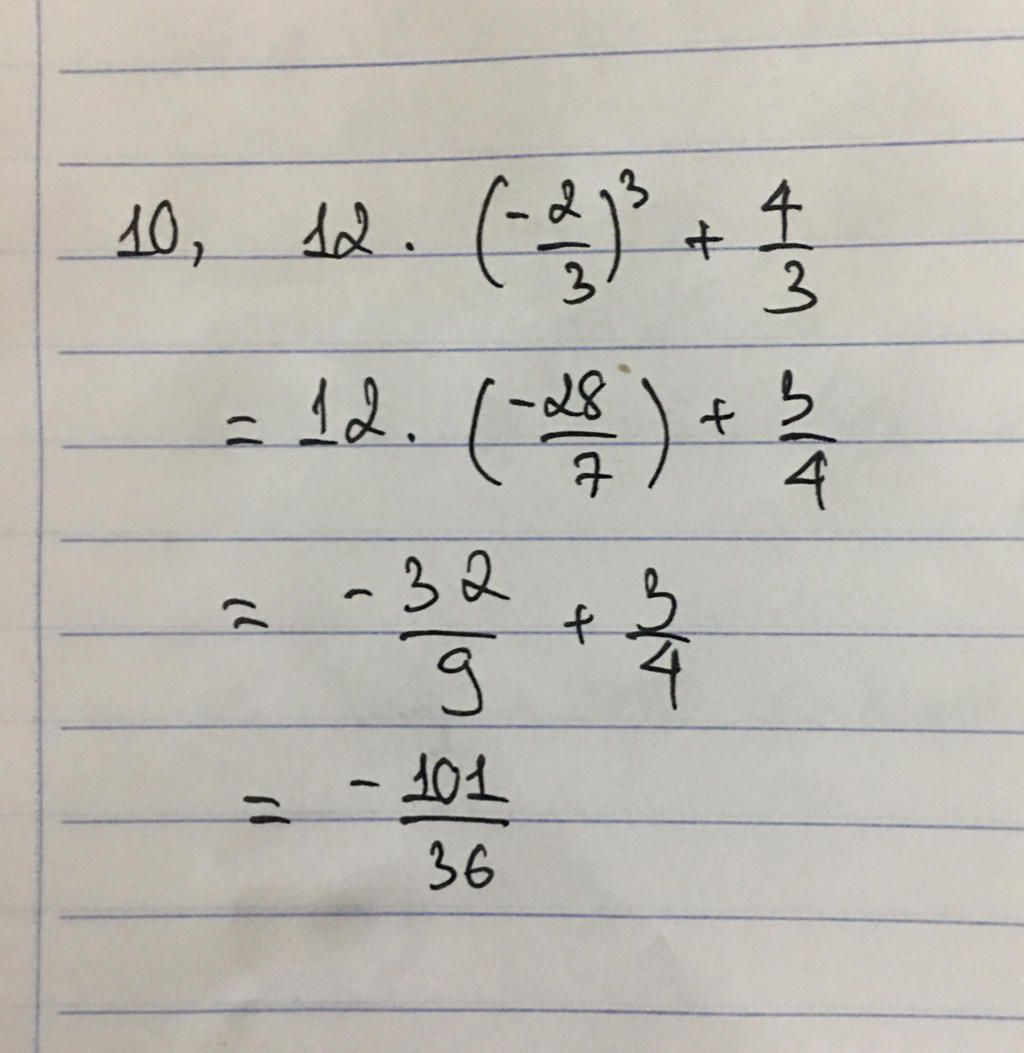 10, 12 . (-2/3)³ + 4/3
= 12 . (-28/7) + 3/4
= -32/9 + 3/4
= -101/36